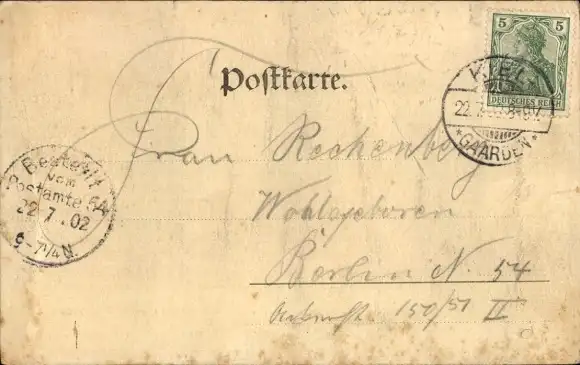 5 5
DEUTSCHES REICH
KIEL
22.
* GAARDEN *
Postkarte.
Frau Rechenberg
Wohlgeboren
Berlin N. 54
150/51 II
Bestellt
vom
Postamte 54
22 7 .02
6-7 1/4 N.